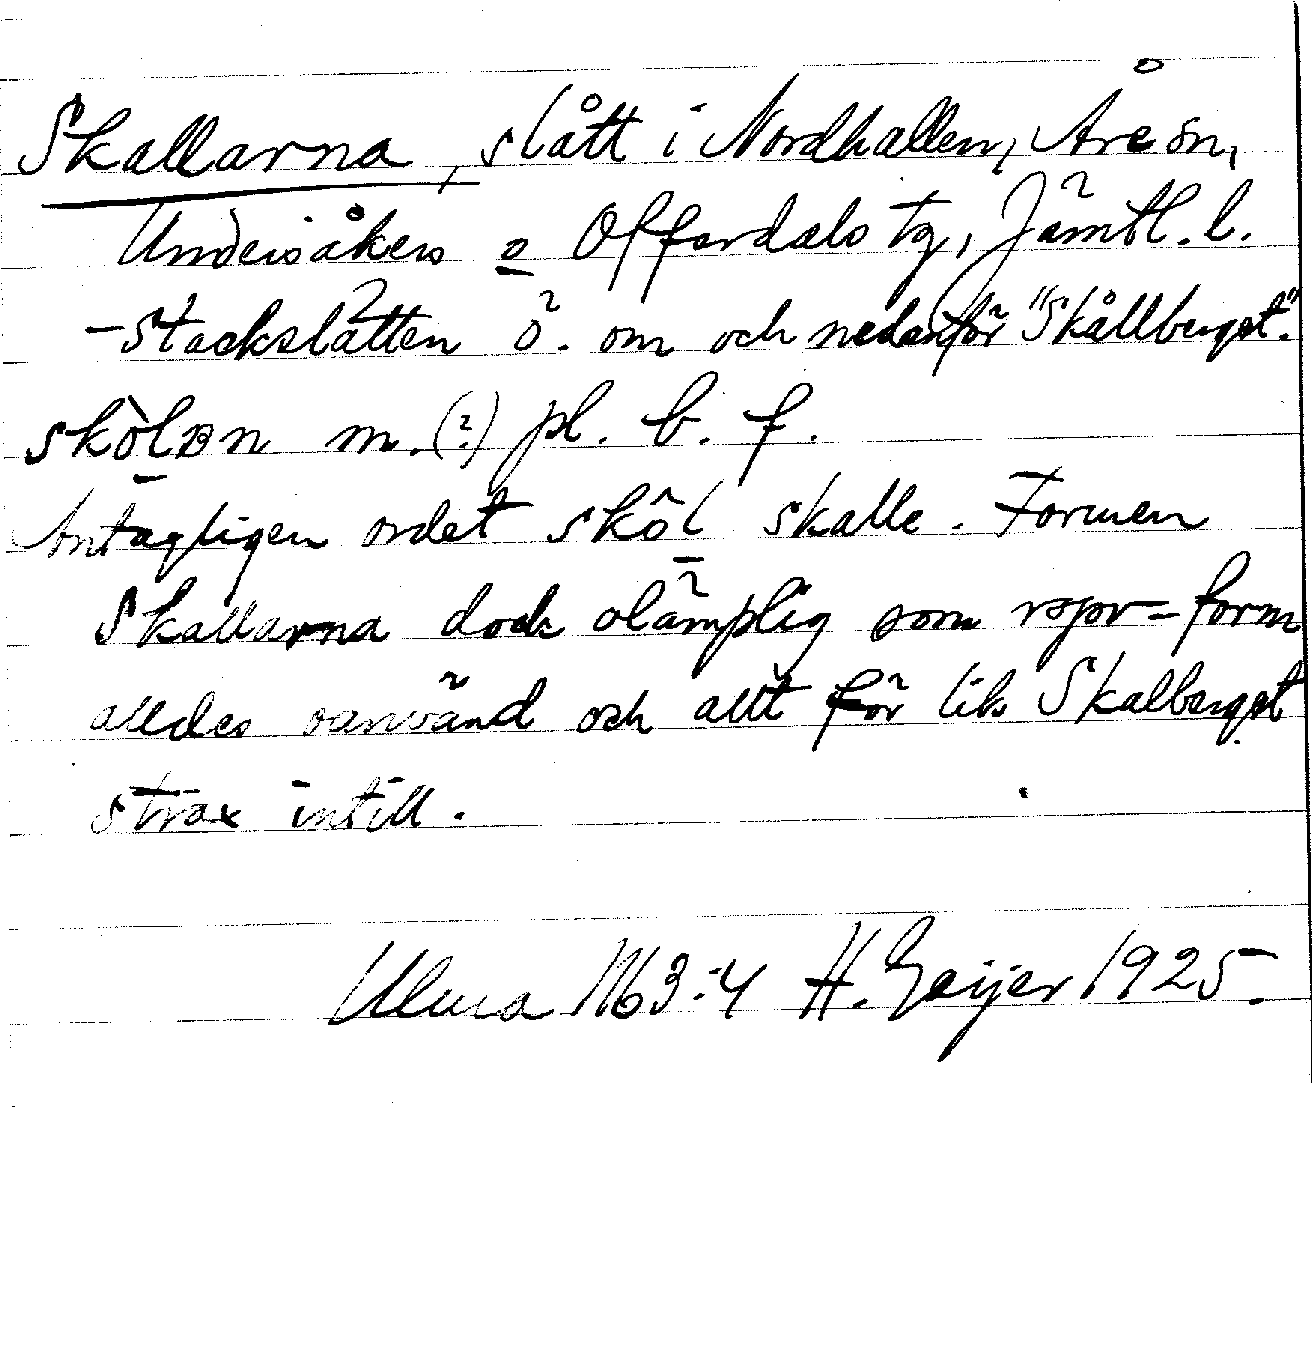 Skallarna, slått i Nordhallen, Åre sn,
Undersåkers o Offerdals tg, Jämtl. l.
– Stackslåtten ö. om och nedanför "Skållberget".
skòlɐn m. (?) pl. b. f.
Antagligen ordet skôl skalle. Formen
Skallarna dock olämplig som form
alldes oanvänd och allt för lik Skalberget
strax intill.
Ulma 163:4 H. Geijer 1925.